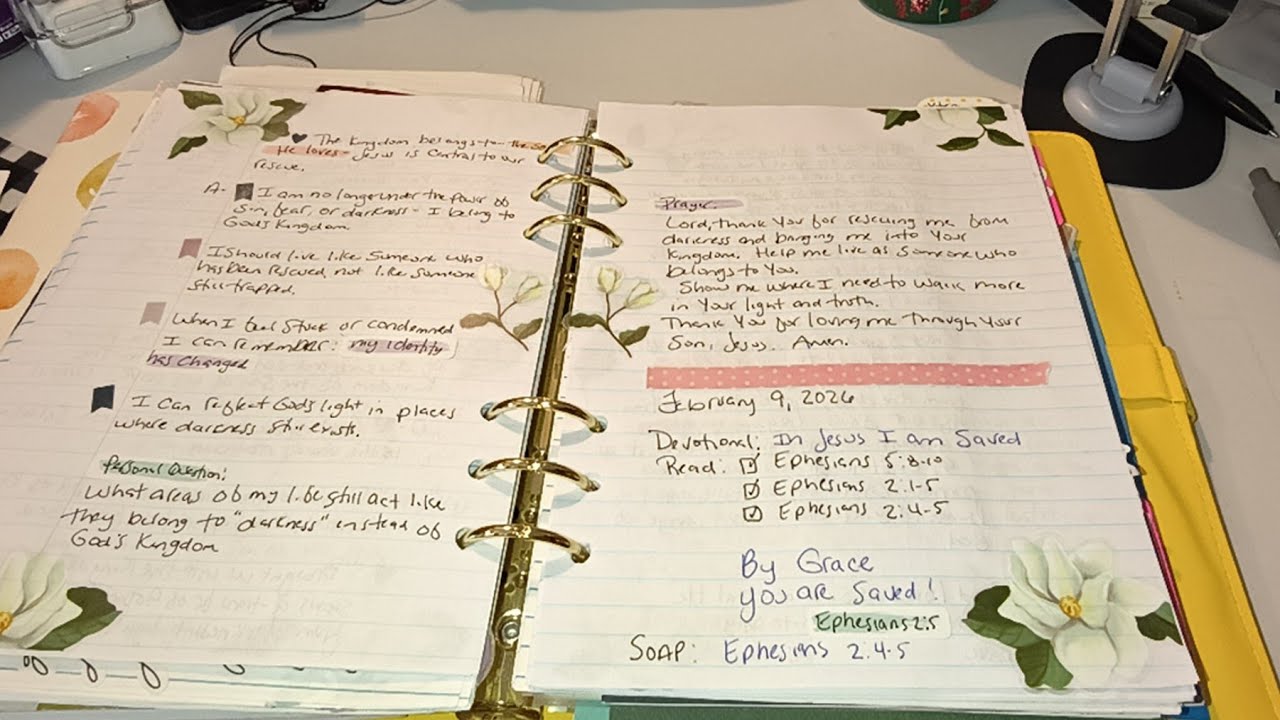 The Kingdom belongs to the
He loves - Jesus is Central to our
rescue.
A- I am no longer under the power of
Sin, fear, or darkness - I belong to
God's Kingdom
I Should live like Someone who
has been rescued, not like someone
still trapped.
When I feel Stuck or condemned
I can remember: my identity
has changed
I can reflect God's light in places
where darkness still exists.
Personal Question:
What areas of my life still act like
they belong to "darkness" instead of
God's Kingdom
Prayer:
Lord, thank You for rescuing me from
darkness and bringing me into Your
Kingdom. Help me live as someone who
belongs to You.
Show me where I need to walk more
in Your light and truth.
Thank You for loving me through Your
Son, Jesus. Amen.
February 9, 2026
Devotional: In Jesus I am Saved
Read: ☑ Ephesians 5:8-10
☑ Ephesians 2:1-5
☑ Ephesians 2:4-5
By Grace
you are Saved!
Ephesians 2:5
SOAP: Ephesians 2:4-5